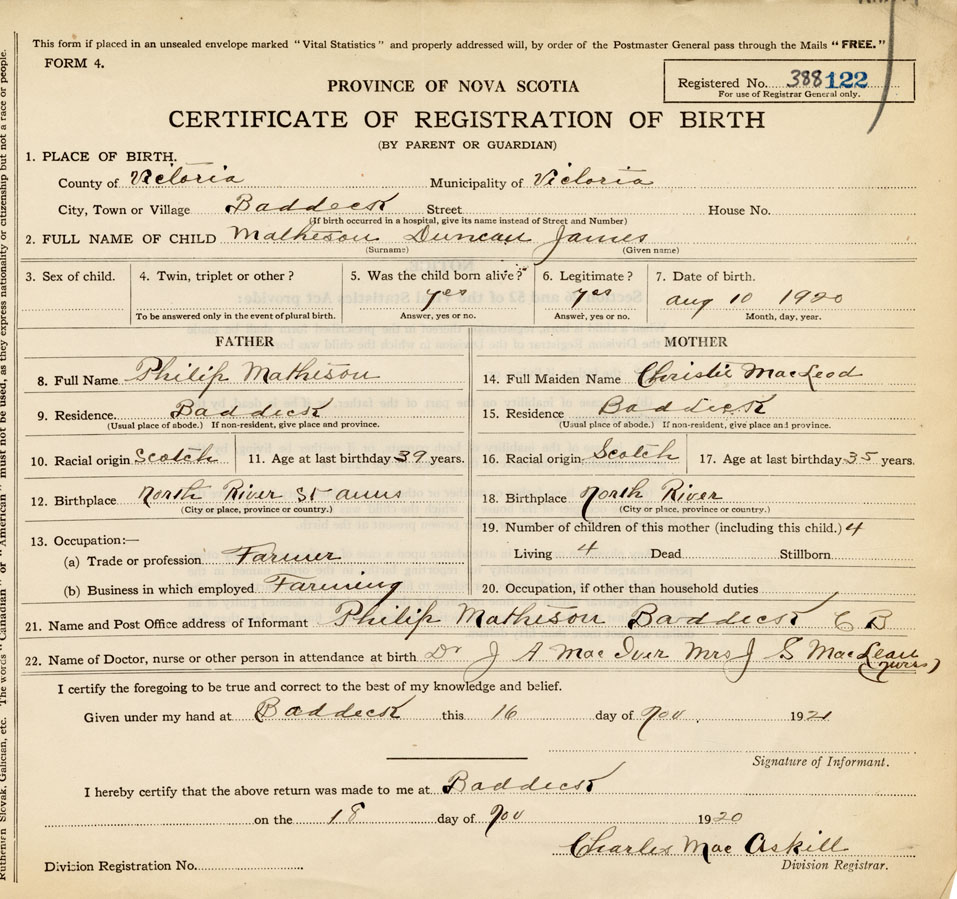 This form if placed in an unsealed envelope marked "Vital Statistics" and properly addressed will, by order of the Postmaster General pass through the Mails "FREE."
FORM 4.
Registered No. 388 122
For use of Registrar General only.
PROVINCE OF NOVA SCOTIA
CERTIFICATE OF REGISTRATION OF BIRTH
(BY PARENT OR GUARDIAN)
1. PLACE OF BIRTH.
County of Victoria Municipality of Victoria
City, Town or Village Baddeck Street House No.
(If birth occurred in a hospital, give its name instead of Street and Number)
2. FULL NAME OF CHILD Matheson Duncan James
(Surname) (Given name)
3. Sex of child. 4. Twin, triplet or other? 5. Was the child born alive? 6. Legitimate? 7. Date of birth.
yes yes aug 10 1920
To be answered only in the event of plural birth. Answer, yes or no. Answer, yes or no. Month, day, year.
FATHER MOTHER
8. Full Name Philip Matheson 14. Full Maiden Name Christie MacLeod
9. Residence Baddeck 15. Residence Baddeck
(Usual place of abode.) If non-resident, give place and province. (Usual place of abode.) If non-resident, give place and province.
10. Racial origin Scotch 11. Age at last birthday 39 years. 16. Racial origin Scotch 17. Age at last birthday 35 years.
12. Birthplace North River St anns 18. Birthplace North River
(City or place, province or country.) (City or place, province or country.)
13. Occupation:— 19. Number of children of this mother (including this child.) 4
(a) Trade or profession Farmer Living 4 Dead Stillborn
(b) Business in which employed Farming 20. Occupation, if other than household duties
21. Name and Post Office address of Informant Philip Matheson Baddeck C B
22. Name of Doctor, nurse or other person in attendance at birth Dr J A MacIver Mrs J S MacLean
(nurse)
I certify the foregoing to be true and correct to the best of my knowledge and belief.
Given under my hand at Baddeck this 16 day of Nov 1921
Signature of Informant.
I hereby certify that the above return was made to me at Baddeck
on the 18 day of Nov 1920
Charles MacAskill
Division Registration No. Division Registrar.
Ruthenian Slovak, Galician, etc. The words "Canadian" or "American" must not be used, as they express nationality or citizenship but not a race or people.